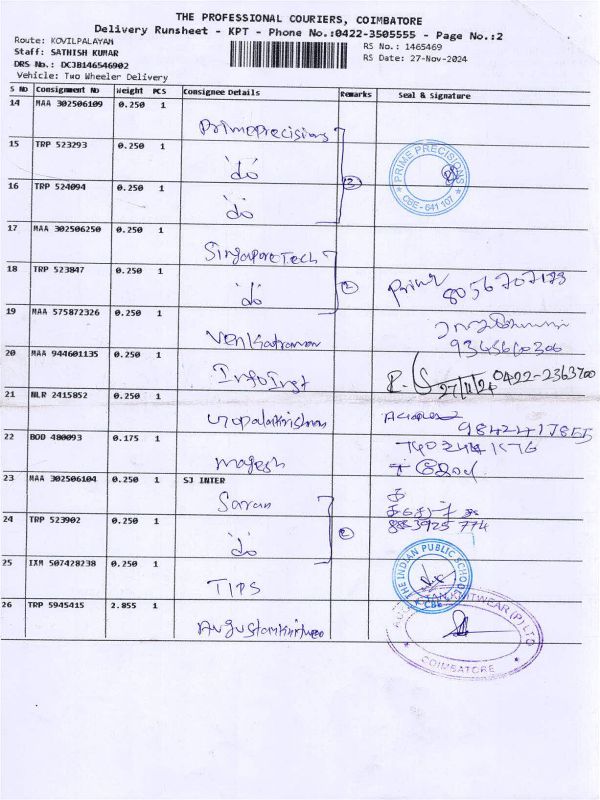 THE PROFESSIONAL COURIERS, COIMBATORE
Delivery Runsheet - KPT - Phone No.:0422-3505555 - Page No.:2
Route: KOVILPALAYAM
RS No.: 1465469
Staff: SATHISH KUMAR
RS Date: 27-Nov-2024
DRS No.: DCJB146546902
Vehicle: Two Wheeler Delivery
S No Consignment No Weight PCS Consignee Details Remarks Seal & Signature
14 MAA 302506109 0.250 1
PrimePrecisions
15 TRP 523293 0.250 1
do 3
PRIME PRECISIONS
CBE - 641 107
16 TRP 524094 0.250 1
do
17 MAA 302506250 0.250 1
SingaporeTech
18 TRP 523847 0.250 1
do 2
19 MAA 575872326 0.250 1
Venkatraman
20 MAA 944601135 0.250 1
27/11/24 0422-2363700
21 NLR 2415852 0.250 1
Gopalakrishnan
22 BOD 480093 0.175 1
Magesh
23 MAA 302506104 0.250 1 SJ INTER
Saran
24 TRP 523902 0.250 1
do 2
25 IXM 507428238 0.250 1
TIPS
THE INDIAN PUBLIC SCHOOL
CBE
26 TRP 5945415 2.855 1
KNITWEAR (P) LTD
COIMBATORE